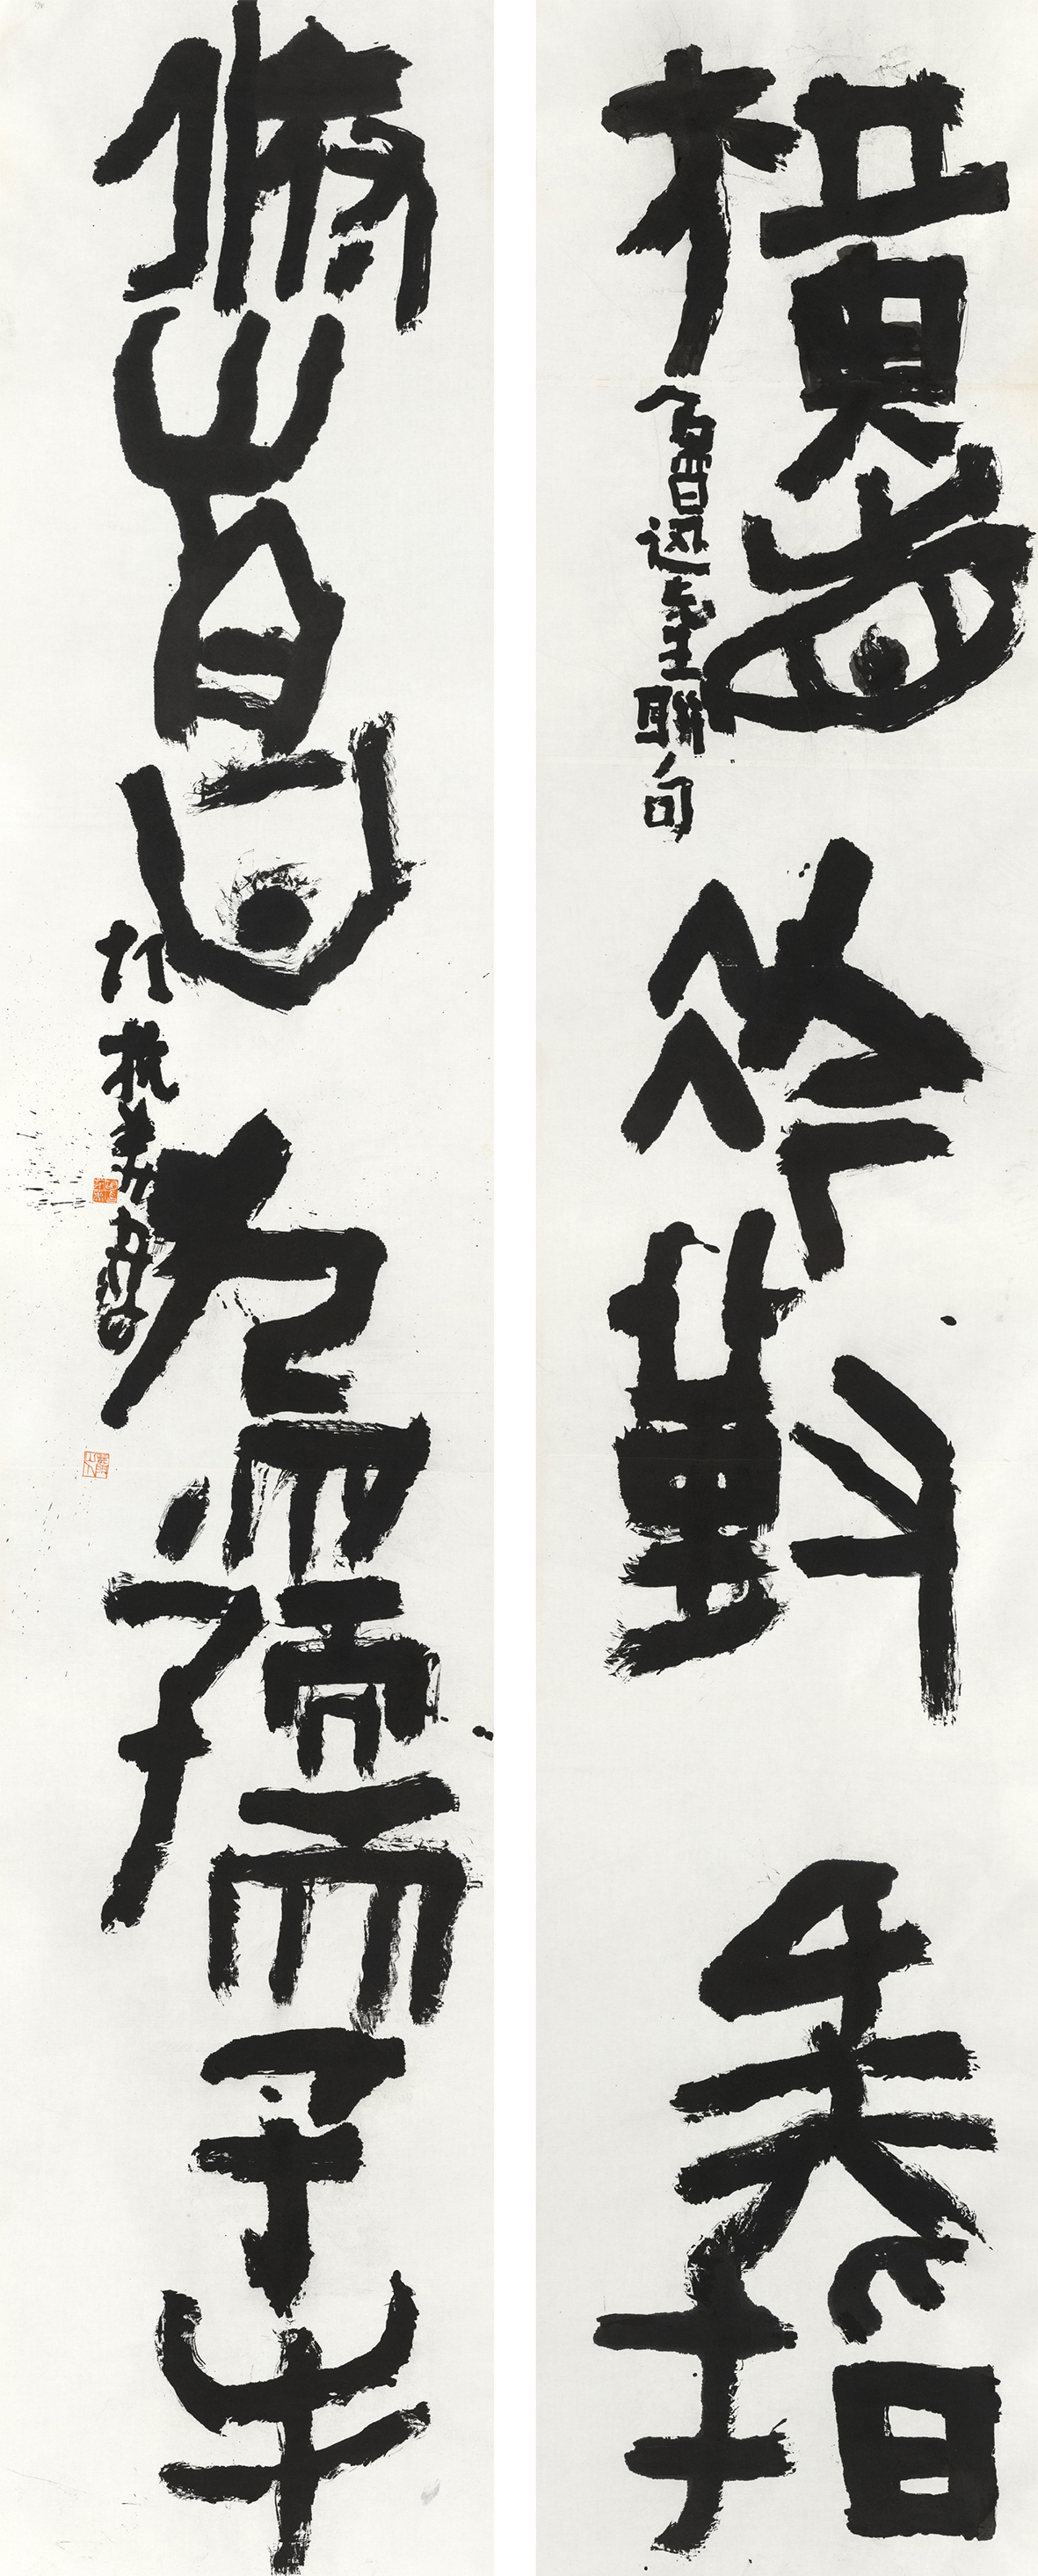 橫眉冷對千夫指
魯迅先生聯句
俯首甘為孺子牛